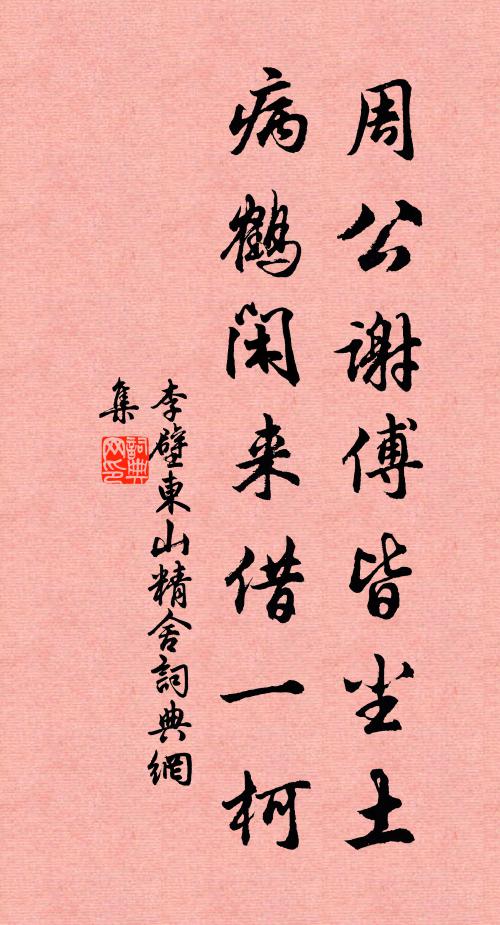 周公谢傅皆尘土
病鹤闲来借一柯
李壁東山精舍詞典網
集
詞典
网印